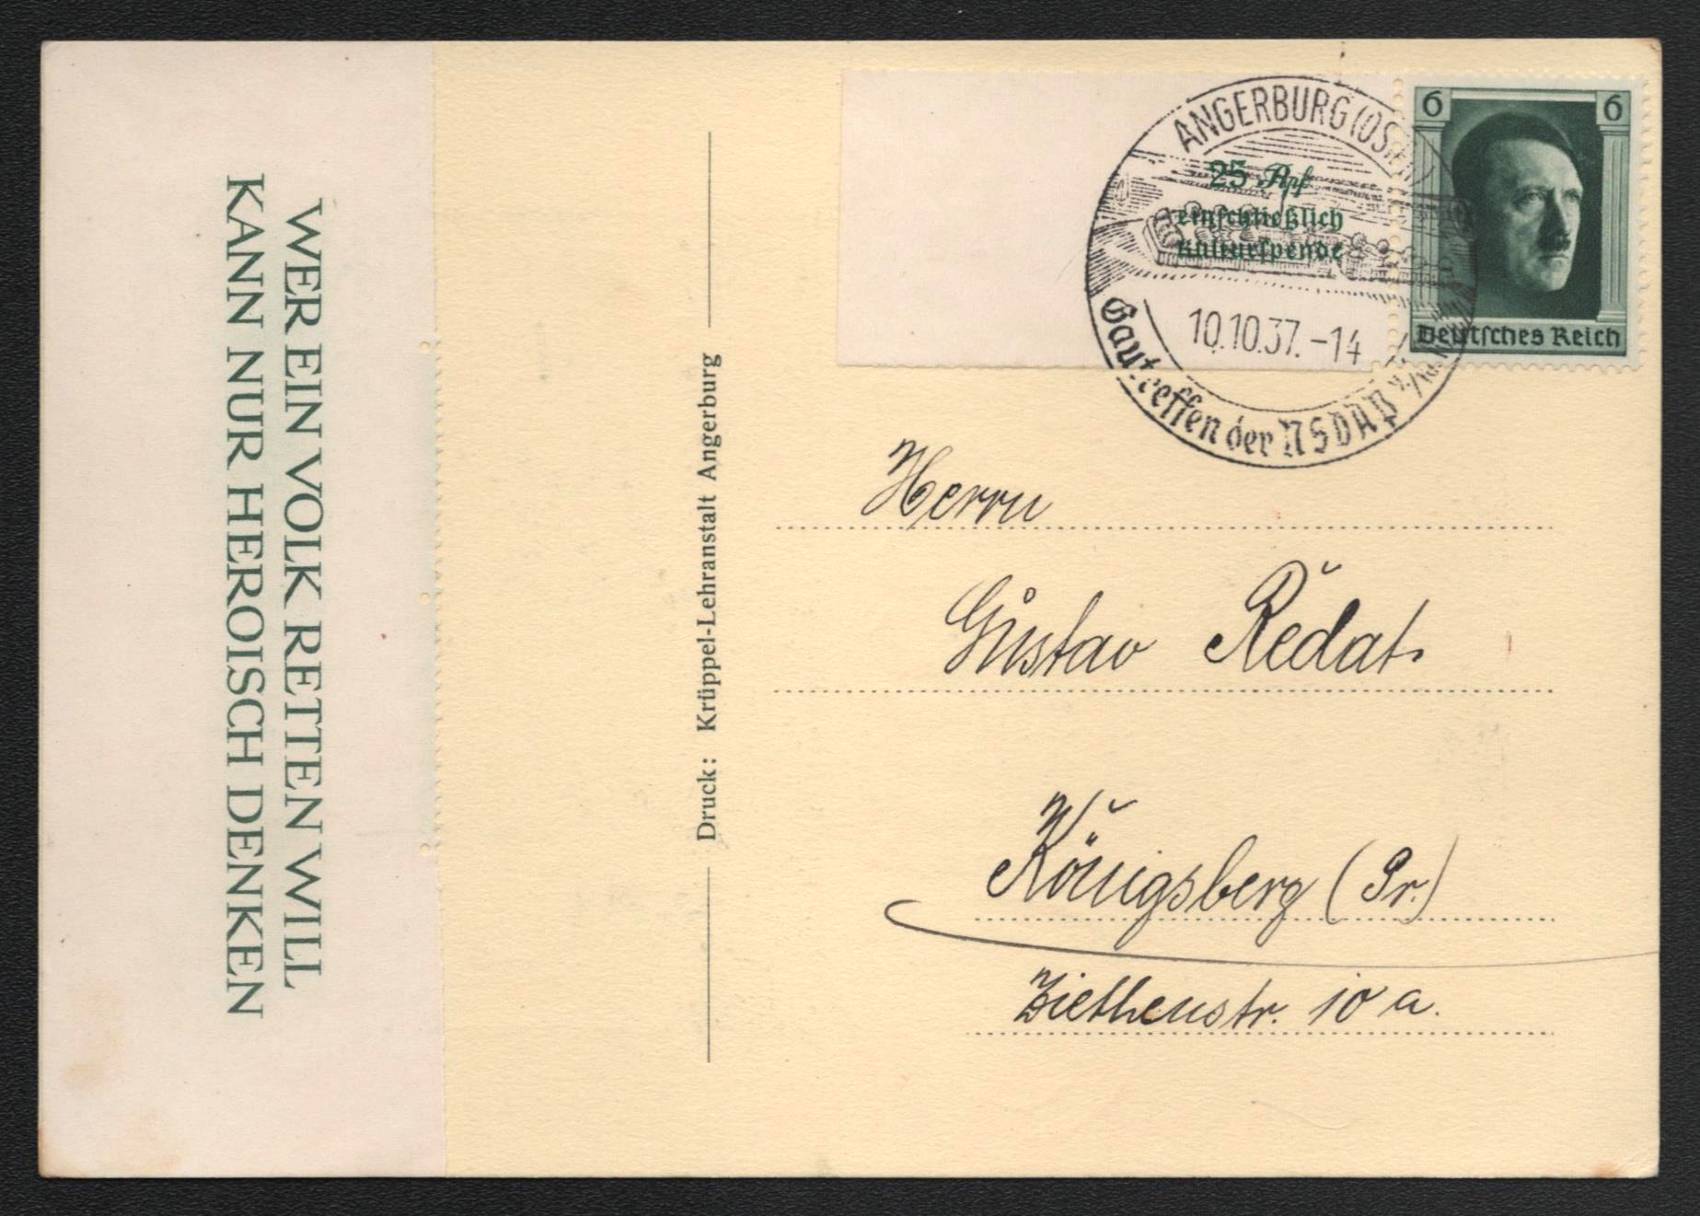 WER EIN VOLK RETTEN WILL
KANN NUR HEROISCH DENKEN
Druck: Krüppel-Lehranstalt Angerburg
25 Rpf
einschließlich
Kulturspende
ANGERBURG (OS
10.10.37.-14
Gautreffen der NSDAP
6 6
Deutsches Reich
Herrn
Gustav Redat.
Königsberg (Pr.)
Ziethenstr. 10 a.